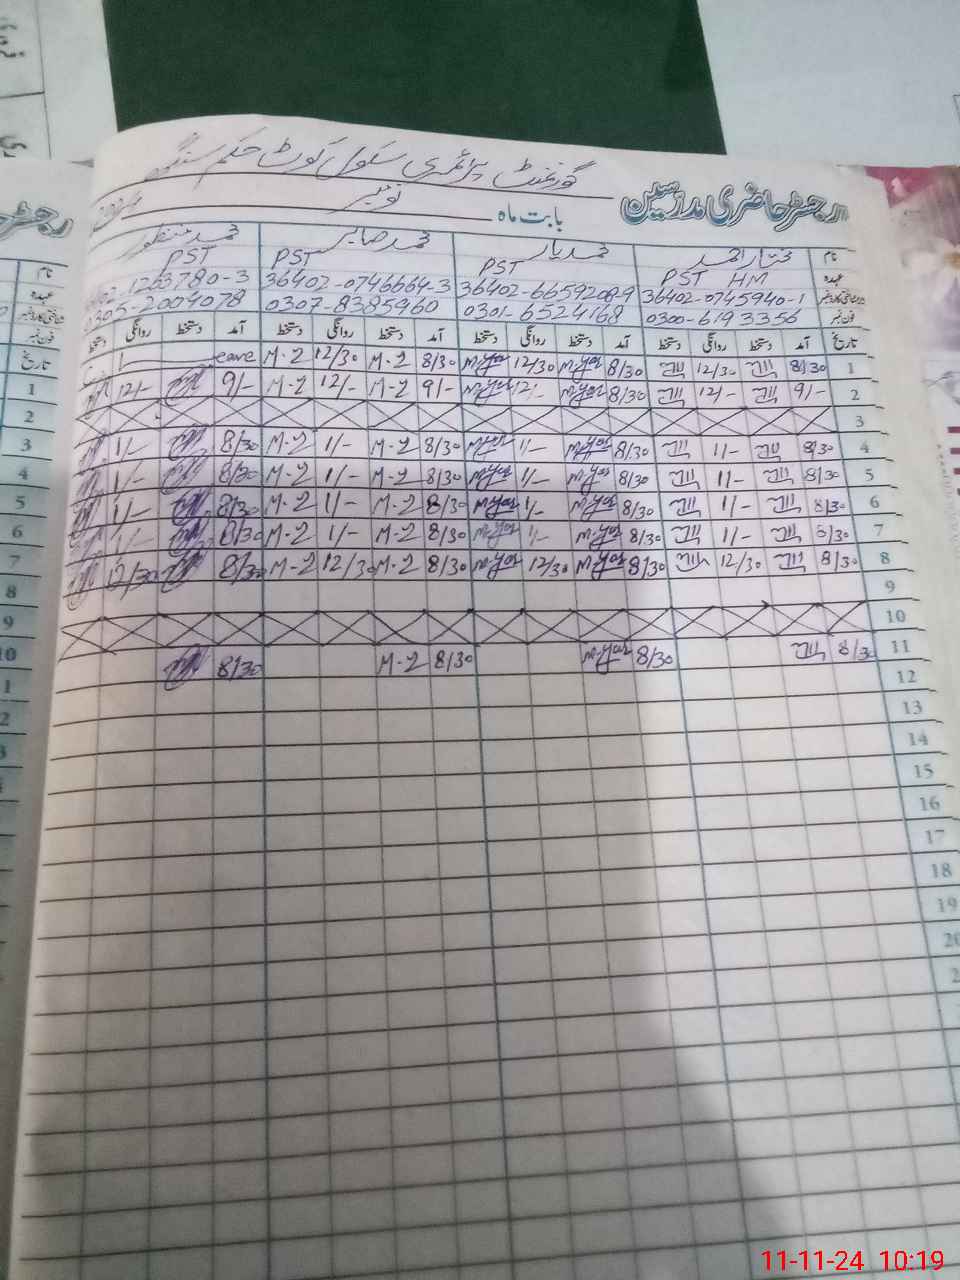 گورنمنٹ پرائمری سکول کوٹ حکم سنگھ
رجسٹر حاضری مدرسین بابت ماہ نومبر
نام مختار احمد محمد یار محمد صابر محمد منظور
عہدہ PST HM PST PST PST
36402-0745940-1 36402-6659208-9 36402-0746664-3
فون نمبر 0300-6193356 0301-6524168 0307-8385960 0305-2004078
تاریخ آمد دستخط روانگی دستخط آمد دستخط روانگی دستخط آمد دستخط روانگی دستخط آمد دستخط روانگی دستخط
1 8/30 12/30 8/30 M-Yar 12/30 M-Yar 8/30 M-2 12/30 M-2 Leave
2 9/- 12/- 8/30 M-Yar 12/- M-Yar 9/- M-2 12/- M-2 9/- 12/-
3
4 8/30 1/- 8/30 M-Yar 1/- M-Yar 8/30 M-2 1/- M-2 8/30 1/-
5 8/30 1/- 8/30 M-Yar 1/- M-Yar 8/30 M-2 1/- M-2 8/30 1/-
6 8/30 1/- 8/30 M-Yar 1/- M-Yar 8/30 M-2 1/- M-2 8/30 1/-
7 8/30 1/- 8/30 M-Yar 1/- M-Yar 8/30 M-2 1/- M-2 8/30 1/-
8 8/30 12/30 8/30 M-Yar 12/30 M-Yar 8/30 M-2 12/30 M-2 8/30 12/30
9
10
11 8/30 8/30 M-Yar 8/30 M-2 8/30
12
13
14
15
16
17
18
19
20
11-11-24 10:19